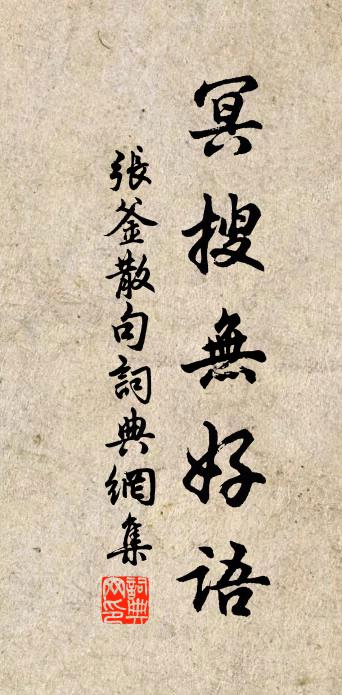 冥搜無好語
張釜散句詞典網集
詞典網印